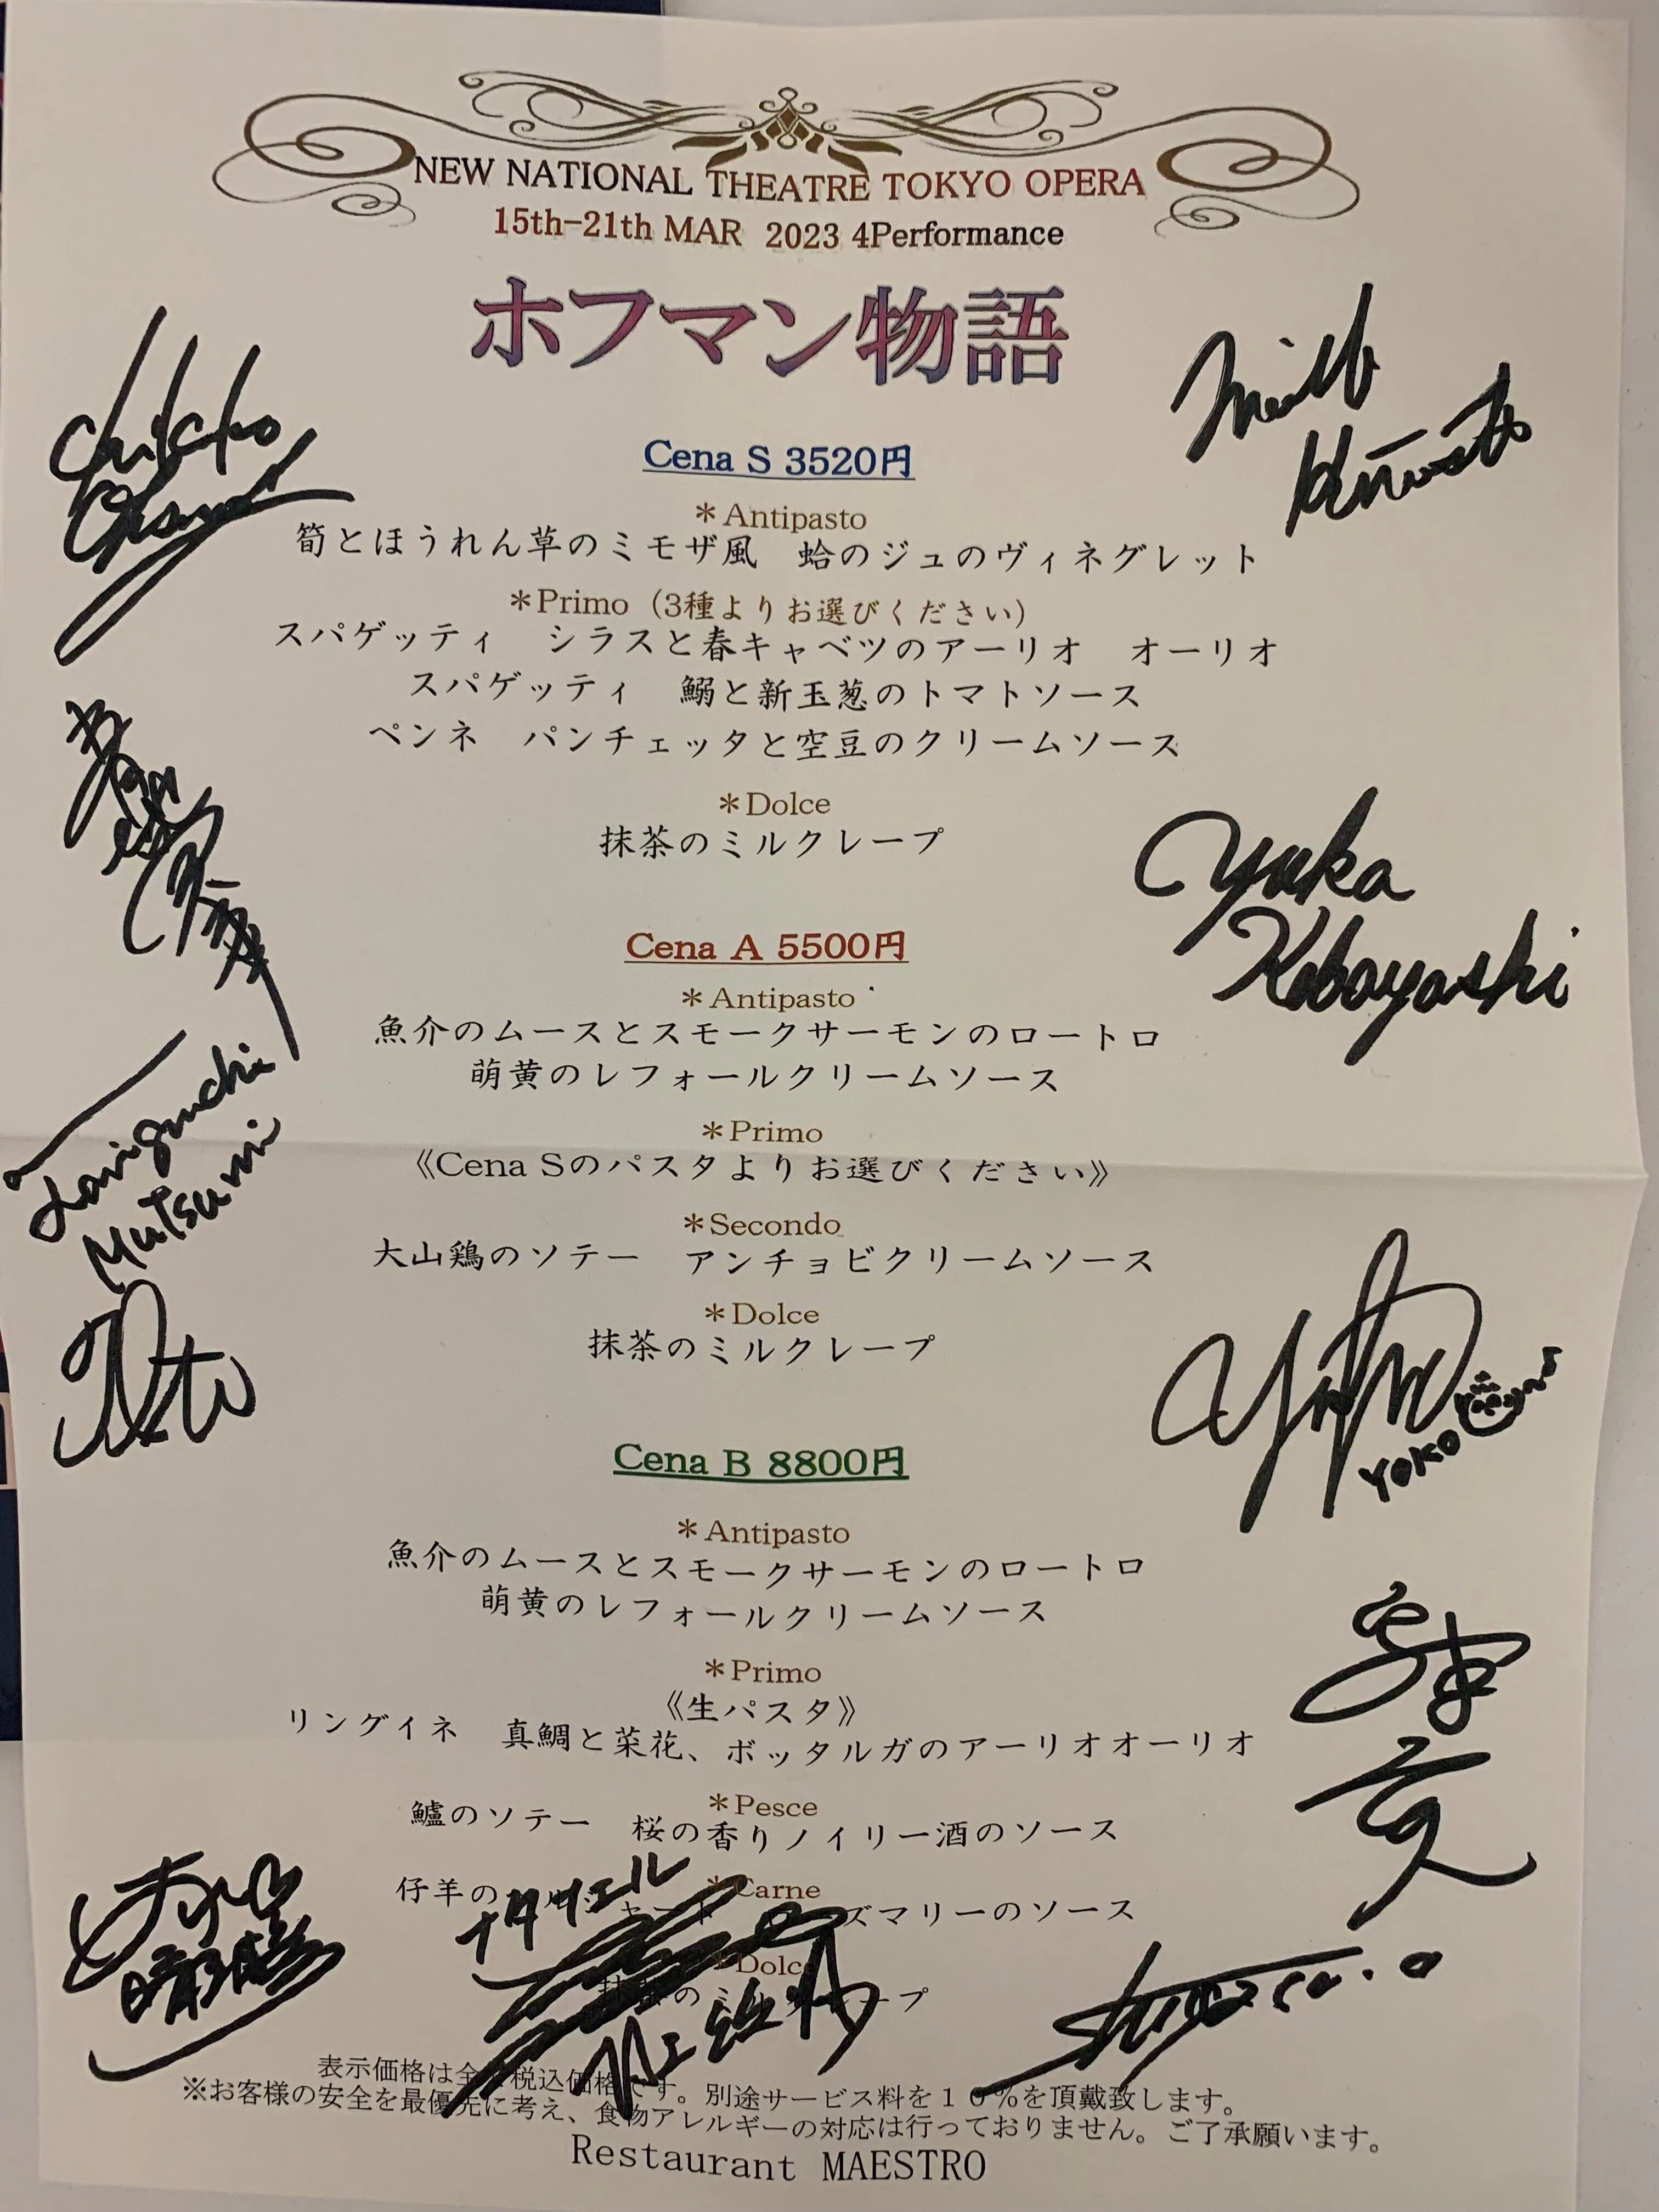 NEW NATIONAL THEATRE TOKYO OPERA
15th-21th MAR 2023 4Performance
ホフマン物語
Cena S 3520円
＊Antipasto
筍とほうれん草のミモザ風　蛤のジュのヴィネグレット
＊Primo（3種よりお選びください）
スパゲッティ　シラスと春キャベツのアーリオ　オーリオ
スパゲッティ　鰯と新玉葱のトマトソース
ペンネ　パンチェッタと空豆のクリームソース
＊Dolce
抹茶のミルクレープ
Yuka
Kobayashi
Cena A 5500円
＊Antipasto
魚介のムースとスモークサーモンのロートロ
萌黄のレフォールクリームソース
＊Primo
《Cena Sのパスタよりお選びください》
Taniguchi
Mutsumi
＊Secondo
大山鶏のソテー　アンチョビクリームソース
＊Dolce
抹茶のミルクレープ
YOKO
Cena B 8800円
＊Antipasto
魚介のムースとスモークサーモンのロートロ
萌黄のレフォールクリームソース
＊Primo
《生パスタ》
リングイネ　真鯛と菜花、ボッタルガのアーリオオーリオ
＊Pesce
鱸のソテー　桜の香りノイリー酒のソース
＊Carne
仔羊の ズマリーのソース
ナタナエル
＊Dolce
抹茶のミルクレープ
表示価格は全て税込価格です。別途サービス料を１０％を頂戴致します。
※お客様の安全を最優先に考え、食物アレルギーの対応は行っておりません。ご了承願います。
Restaurant MAESTRO